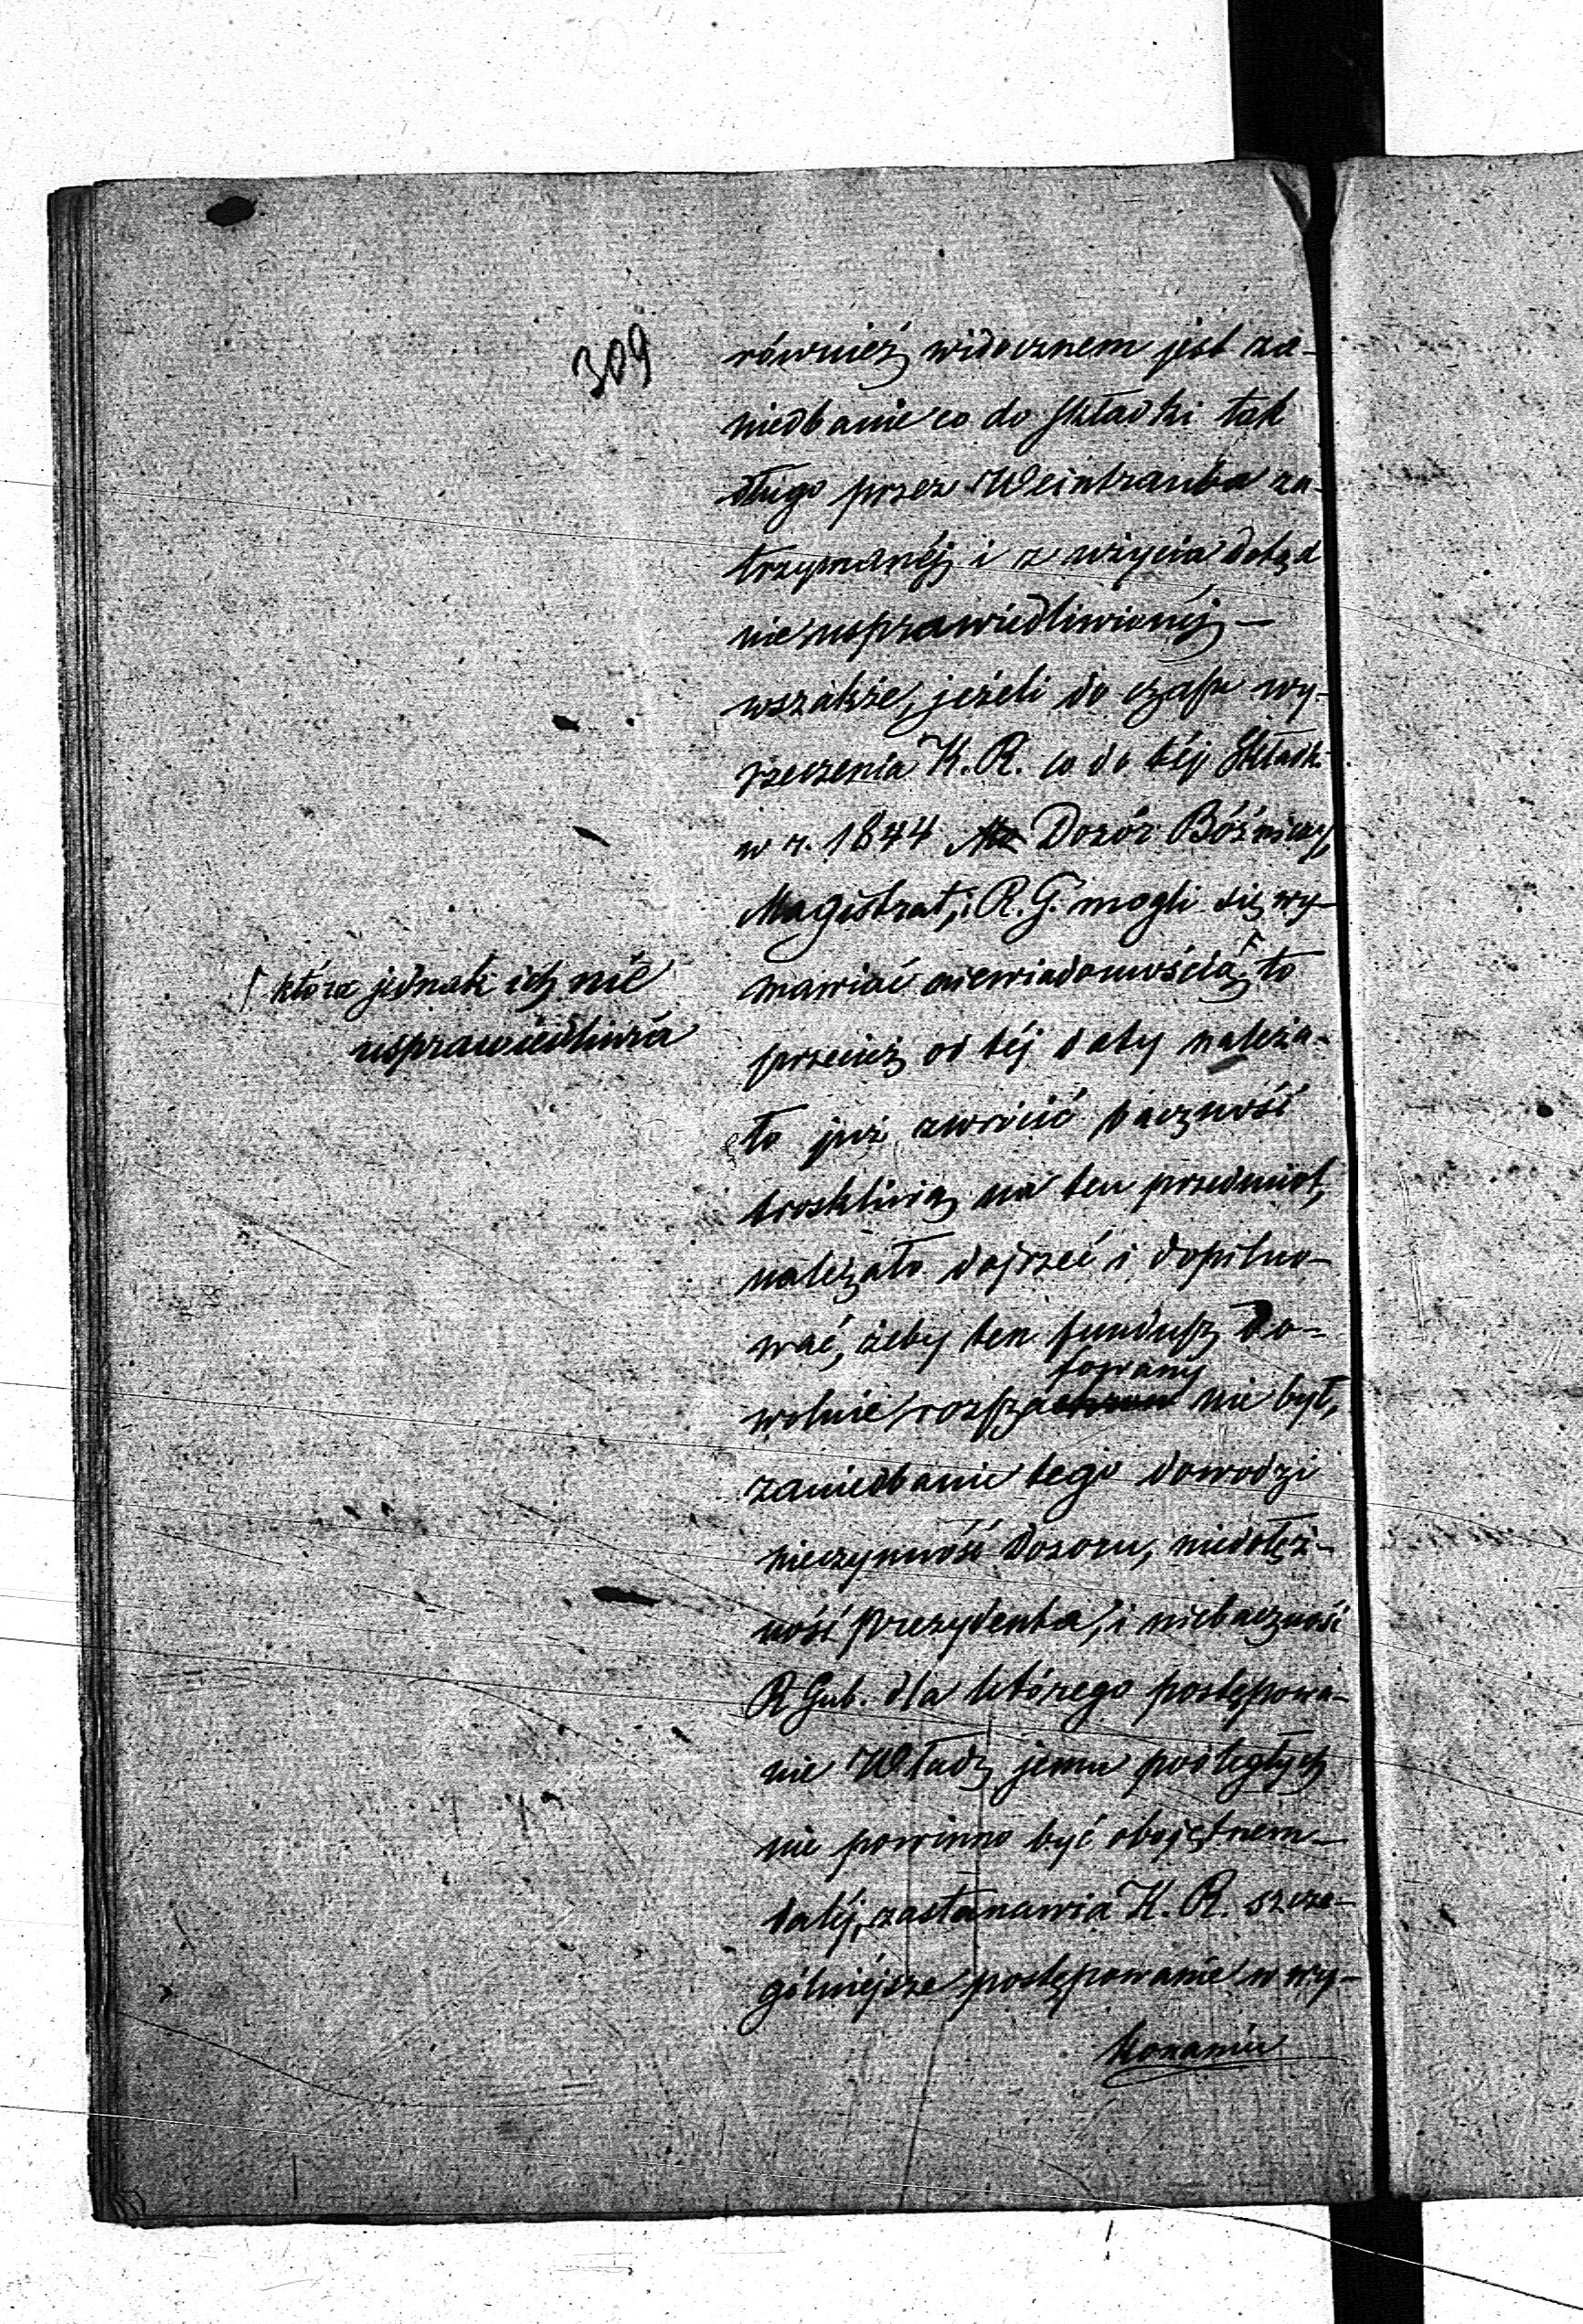 309
również widocznem jest za-
niedbanie co do składki tak
długo przez Weintrauba za-
trzymanéj i z użycia dotąd
nieusprawiedliwionéj —
wszakże, jeżeli do czasu wy-
rzeczenia K. R. co do téj Składk.
w r. 1844 Dozór Bóżniczy,
Magistrat, i R. G. mogli się wy-
mawiać niewiadomością, ⌈ to
⌈ która jednak ich nie
usprawiedliwia
przecież od téj daty należa-
ło już zwrócić baczność
troskliwą na ten przedmiot,
należało dojrzeć i dopilno-
wać, żeby ten fundusz do-
wolnie, rozszafowany nie był,
zaniedbanie tego dowodzi
nieczynność Dozoru, niedołęż-
ność Prezydenta, i niebaczność
R Gub. dla którego postępowa-
nie Władz jemu podległych
nie powinno być obojętnem —
daléj, zastanawia K. R. szcze-
gólniéjsze postępowanie w wy-
konaniu